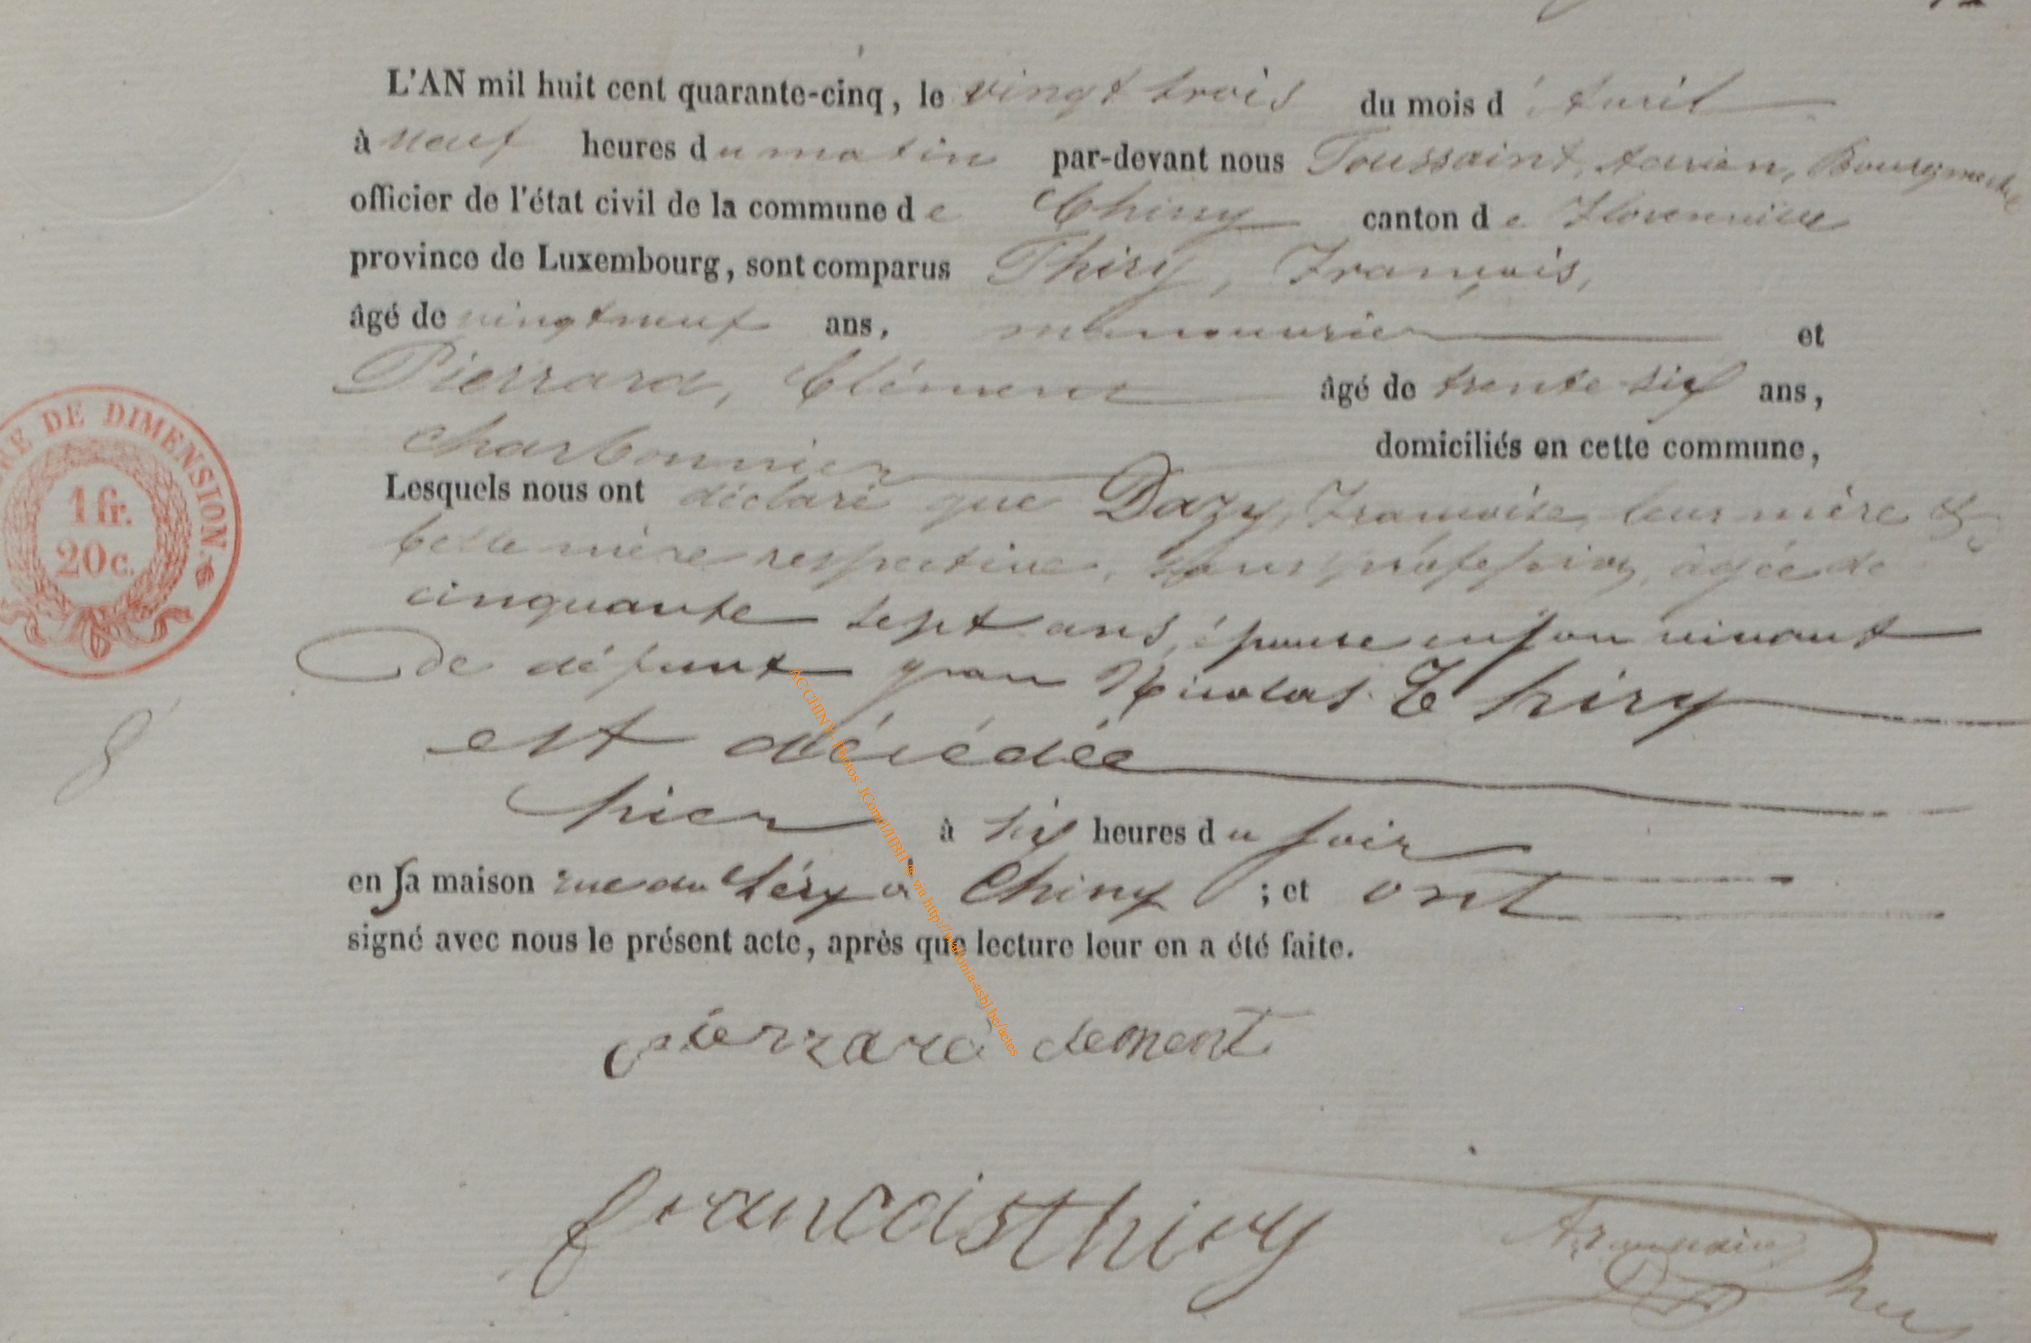 L'AN mil huit cent quarante-cinq, le vingt trois du mois d'Avril
à neuf heures du matin par-devant nous Toussaint, Adrien, Bourgmestre
officier de l'état civil de la commune de Chiny canton de Florenville
province de Luxembourg, sont comparus Thiry, François,
âgé de vingt neuf ans, manouvrier et
Pierrard, Clément âgé de trente six ans,
charbonnier domiciliés en cette commune,
Lesquels nous ont déclaré que Dazy, Françoise, leur mère &
belle mère respective, sans profession, agée de
cinquante sept ans, épouse en son vivant
de défunt Jean Nicolas Thiry
est décédée
hier à six heures du soir
en sa maison rue du à Chiny ; et ont
signé avec nous le présent acte, après que lecture leur en a été faite.
DE DIMENSION.
1 fr.
20 c.
pierrard clement
francois thiry
AC CHINY